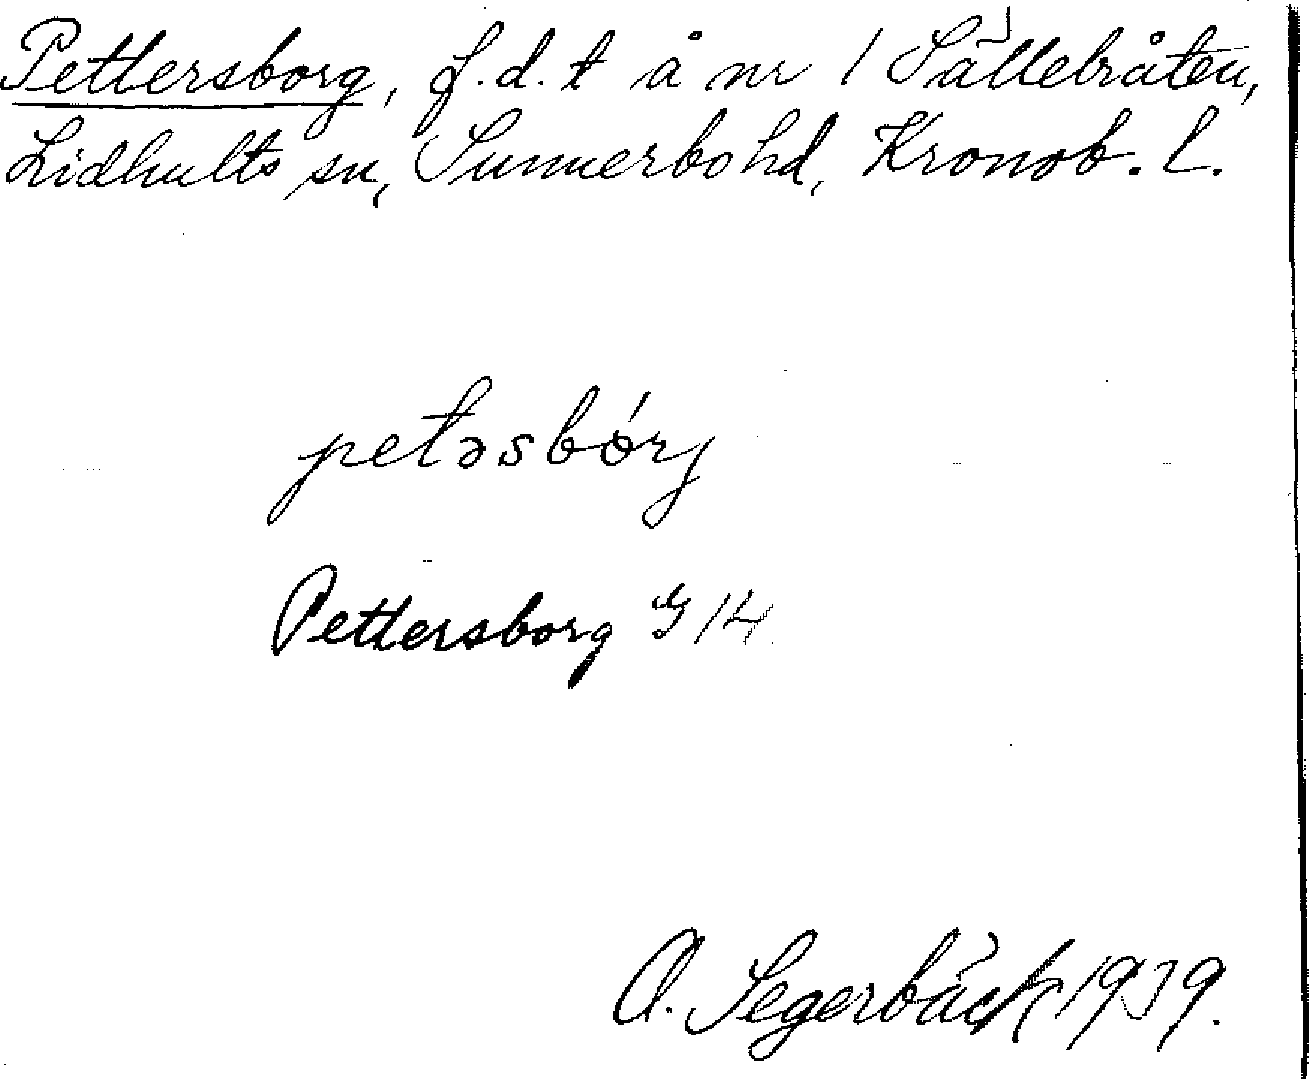 Pettersborg, f.d.t å nr 1 Sällebråten,
Lidhults sn, Sunnerbo hd, Kronob. L.
petəsbórj
Pettersborg G 14
A. Segerbäck 1939.